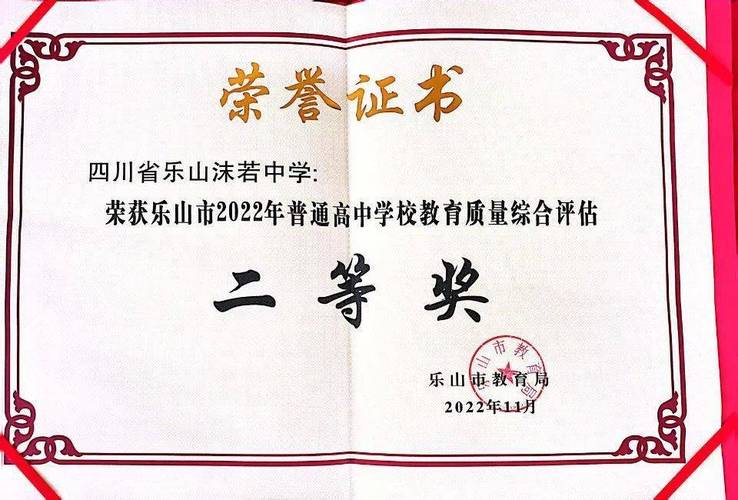 荣誉证书
四川省乐山沫若中学:
荣获乐山市2022年普通高中学校教育质量综合评估
二等奖
乐山市教育局
乐山市教育局
2022年11月